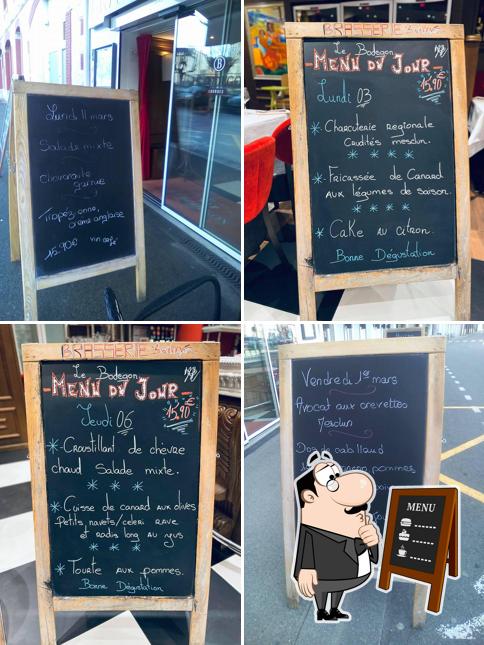 Lundi 11 mars
Salade mixte
Choucroute
garnie
Tropézienne,
crème anglaise
15.90€ vin
B
BRASSERIE
Le Bodegon
MENU DU JOUR
15,90€
Lundi 03
Charcuterie regionale
Crudités mesclun.
Fricassée de Canard
aux légumes de saison.
Cake au citron.
Bonne Dégustation
BRASSERIE
Le Bodegon
MENU DU JOUR
15,90€
Jeudi 06
Croustillant de chèvre
chaud Salade mixte.
Cuisse de canard aux olives
Petits navets/celeri rave
et radis long au jus
Tourte aux pommes.
Bonne Dégustation
Vendredi 1er mars
Avocat aux crevettes
Mesclun
Dos de cabillaud
pommes
MENU